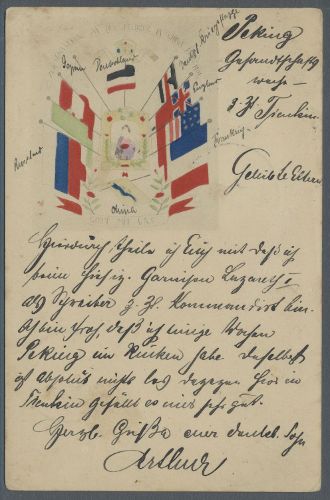 Japan
Deutschland
Deutsch. Kriegsflagge
England
Russland
Frankr.
China
GOTT MIT UNS
Peking
Gesandtschafts
wache
z. Zt. Tientsin
Geliebte Eltern
Hierdurch theile ich Euch mit daß ich
beim hiesig. Garnison Lazareth
als Schreiber z. Zt. kommandirt bin.
Ich bin froh, daß ich einige Wochen
Peking im Rücken habe daselbst
ist absolut nichts los dagegen hier in
Tientsin gefällt es mir sehr gut.
Herzl. Grüße euer dankb. Sohn
Arthur